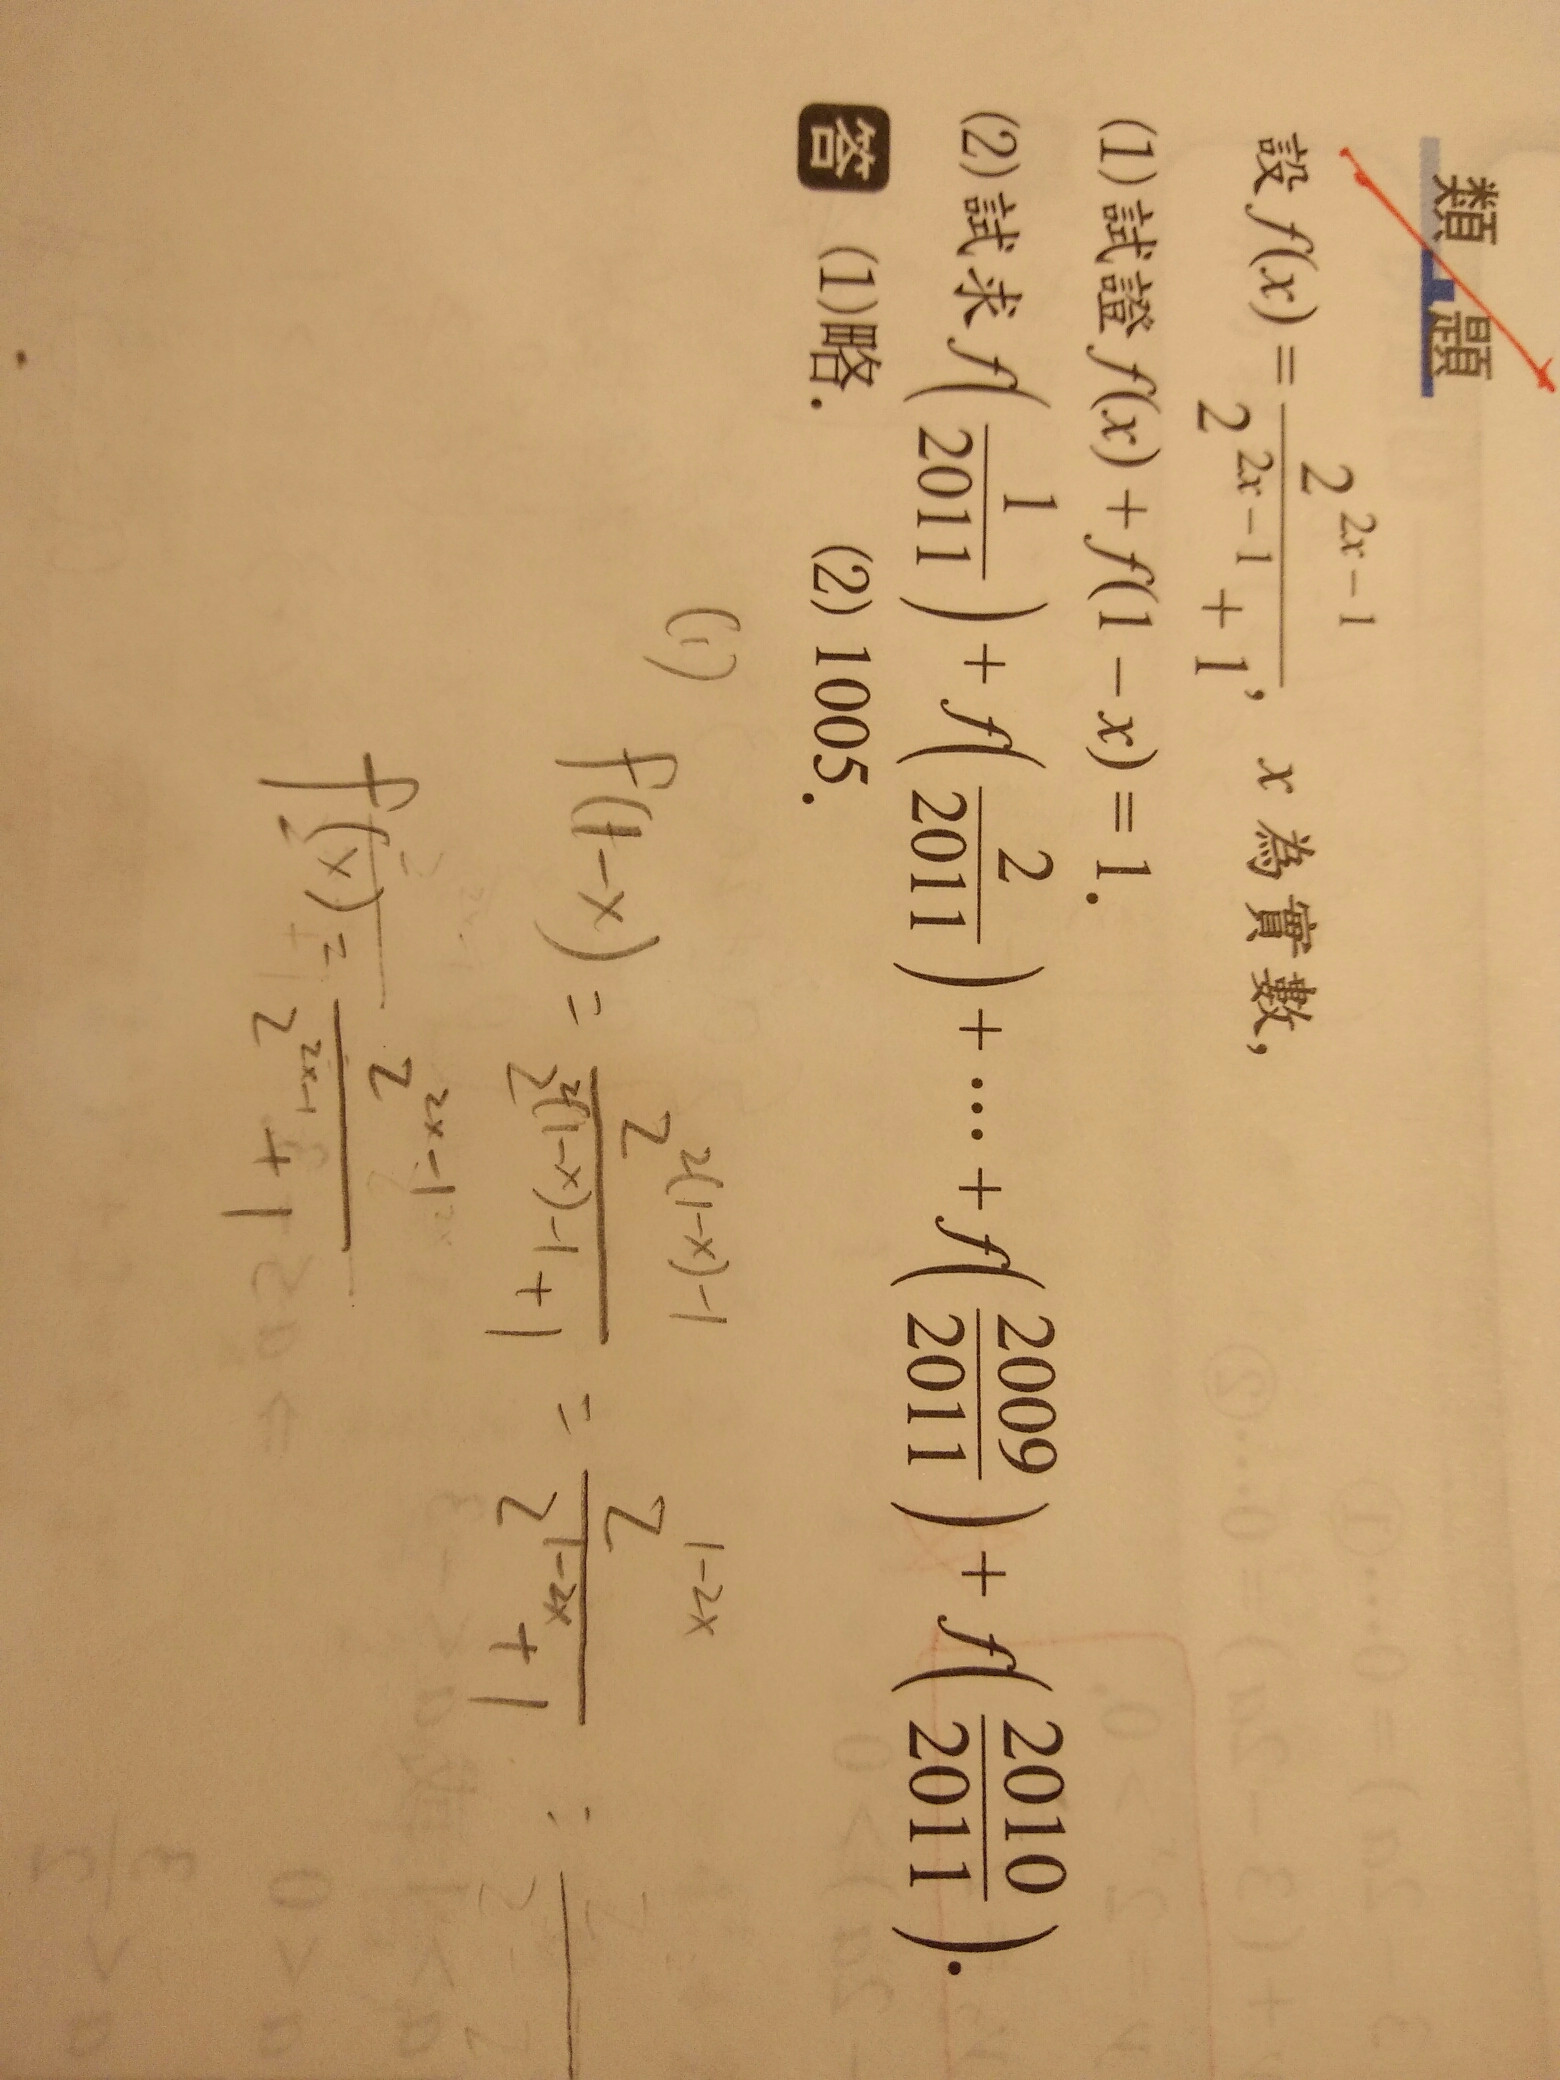 類題
設 f(x) = \frac{2^{2x-1}}{2^{2x-1}+1}, x 為實數,
(1) 試證 f(x) + f(1 − x) = 1.
(2) 試求 f(\frac{1}{2011}) + f(\frac{2}{2011}) + ⋯ + f(\frac{2009}{2011}) + f(\frac{2010}{2011}).
答 (1)略. (2) 1005.
(1) f(1-x) = \frac{2^{2(1-x)-1}}{2^{2(1-x)-1}+1} = \frac{2^{1-2x}}{2^{1-2x}+1} =
f(x) = \frac{2^{2x-1}}{2^{2x-1}+1}